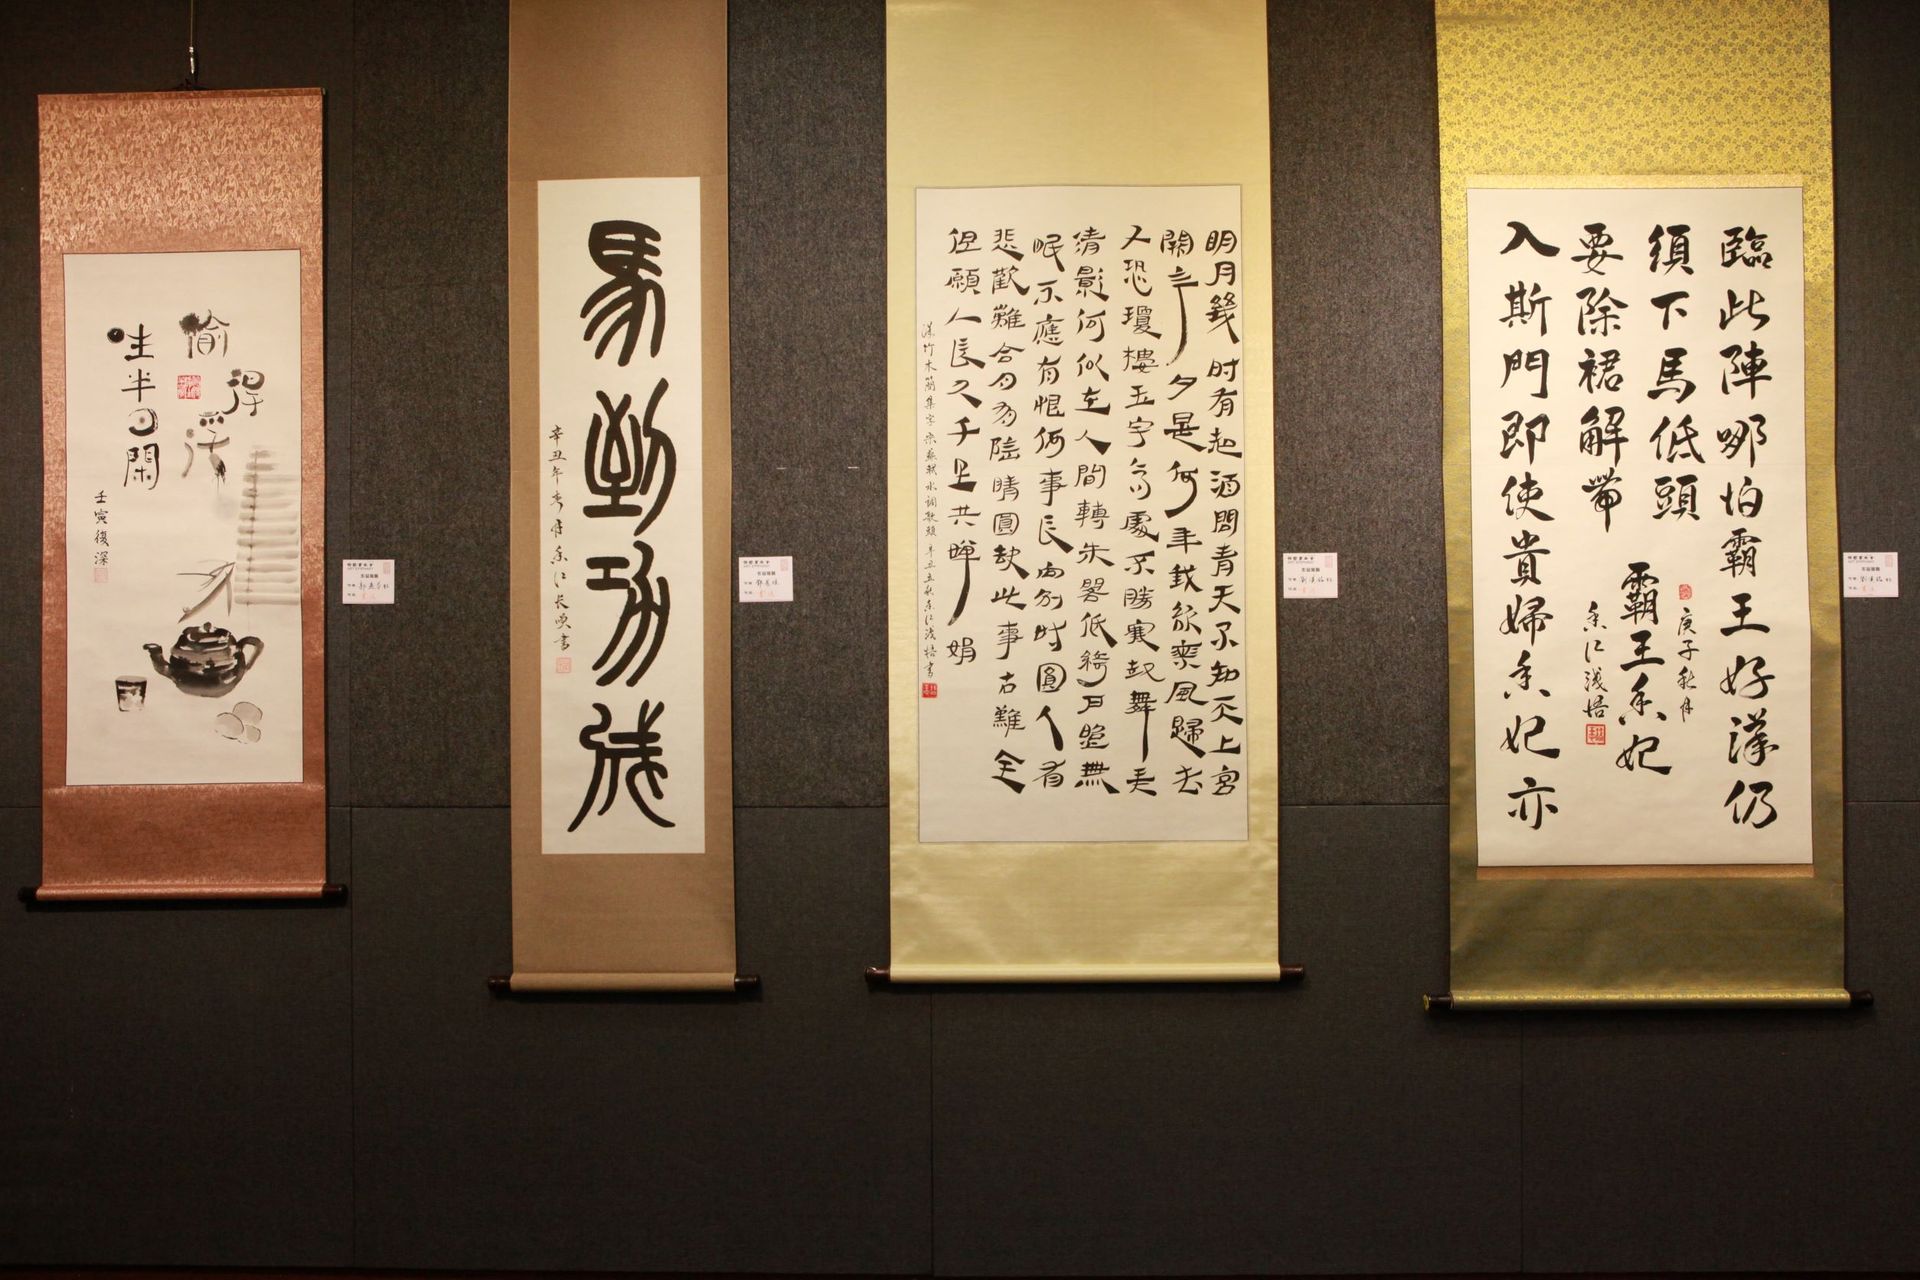 臨此陣哪怕霸王好漢仍
須下馬低頭
要除裙解帶
入斯門即使貴婦香妃亦
霸王香妃
庚子秋月
香江淺悟
明月幾時有把酒問青天不知天上宮
闕今夕是何年我欲乘風歸去
又恐瓊樓玉宇高處不勝寒起舞弄
清影何似在人間轉朱閣低綺戶照無
眠不應有恨何事長向別時圓人有
悲歡離合月有陰晴圓缺此事古難全
但願人長久千里共嬋娟
漢竹木簡集字宋蘇軾水調歌頭辛丑秋香江淺悟書
馬到功成
辛丑年春月香江長書
偷得浮
生半日閑
壬寅復深